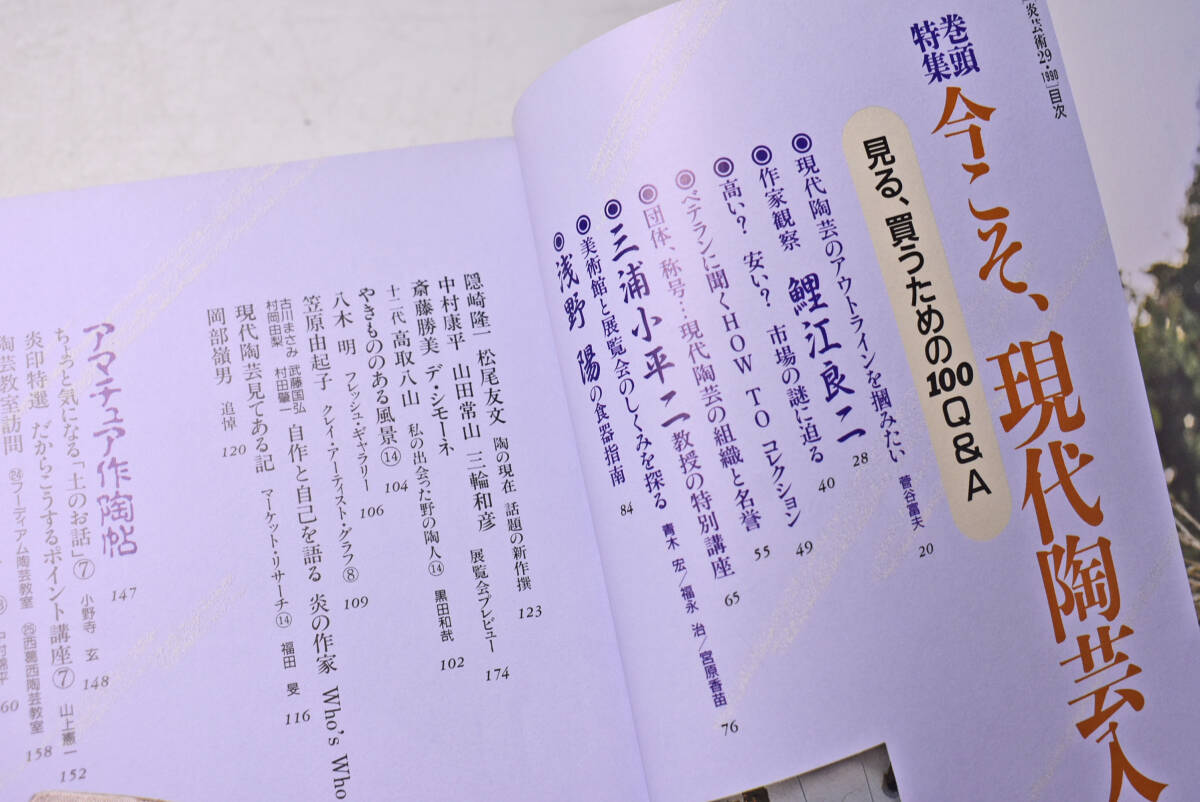 炎芸術29・1990 目次
巻頭特集
今こそ、現代陶芸入
見る、買うための100Q&A
◉現代陶芸のアウトラインを掴みたい 菅谷富夫 20
◉作家観察 鯉江良二 28
◉高い? 安い? 市場の謎に迫る 40
◉ベテランに聞くHOW TO コレクション 49
◉団体、称号…現代陶芸の組織と名誉 55
◉三浦小平二教授の特別講座 65
◉美術館と展覧会のしくみを探る 青木 宏/福永 治/宮原香苗 76
◉浅野 陽の食器指南 84
隠崎隆一 松尾友文 陶の現在 話題の新作撰 123
中村康平 山田常山 三輪和彦 展覧会プレビュー 174
斎藤勝美 デ・シモーネ
十二代 高取八山 私の出会った野の陶人⑭ 黒田和哉 102
やきもののある風景⑭ 104
八木 明 フレッシェ・ギャラリー 106
笠原由起子 クレイ・アーティスト・グラフ⑧ 109
古川まさみ 武藤国弘
村岡由梨 村田肇一 自作と自己を語る 炎の作家 Who's Who
現代陶芸見てある記 マーケット・リサーチ⑭ 福田 旻 116
岡部嶺男 追悼 120
アマチュア作陶帖 147
ちょっと気になる「土のお話」⑦ 小野寺 玄 148
炎印特選 だからこうするポイント講座⑦ 山上憲一 152
陶芸教室訪問 ㉔フーディアム陶芸教室 ㉕西葛西陶芸教室 158
60